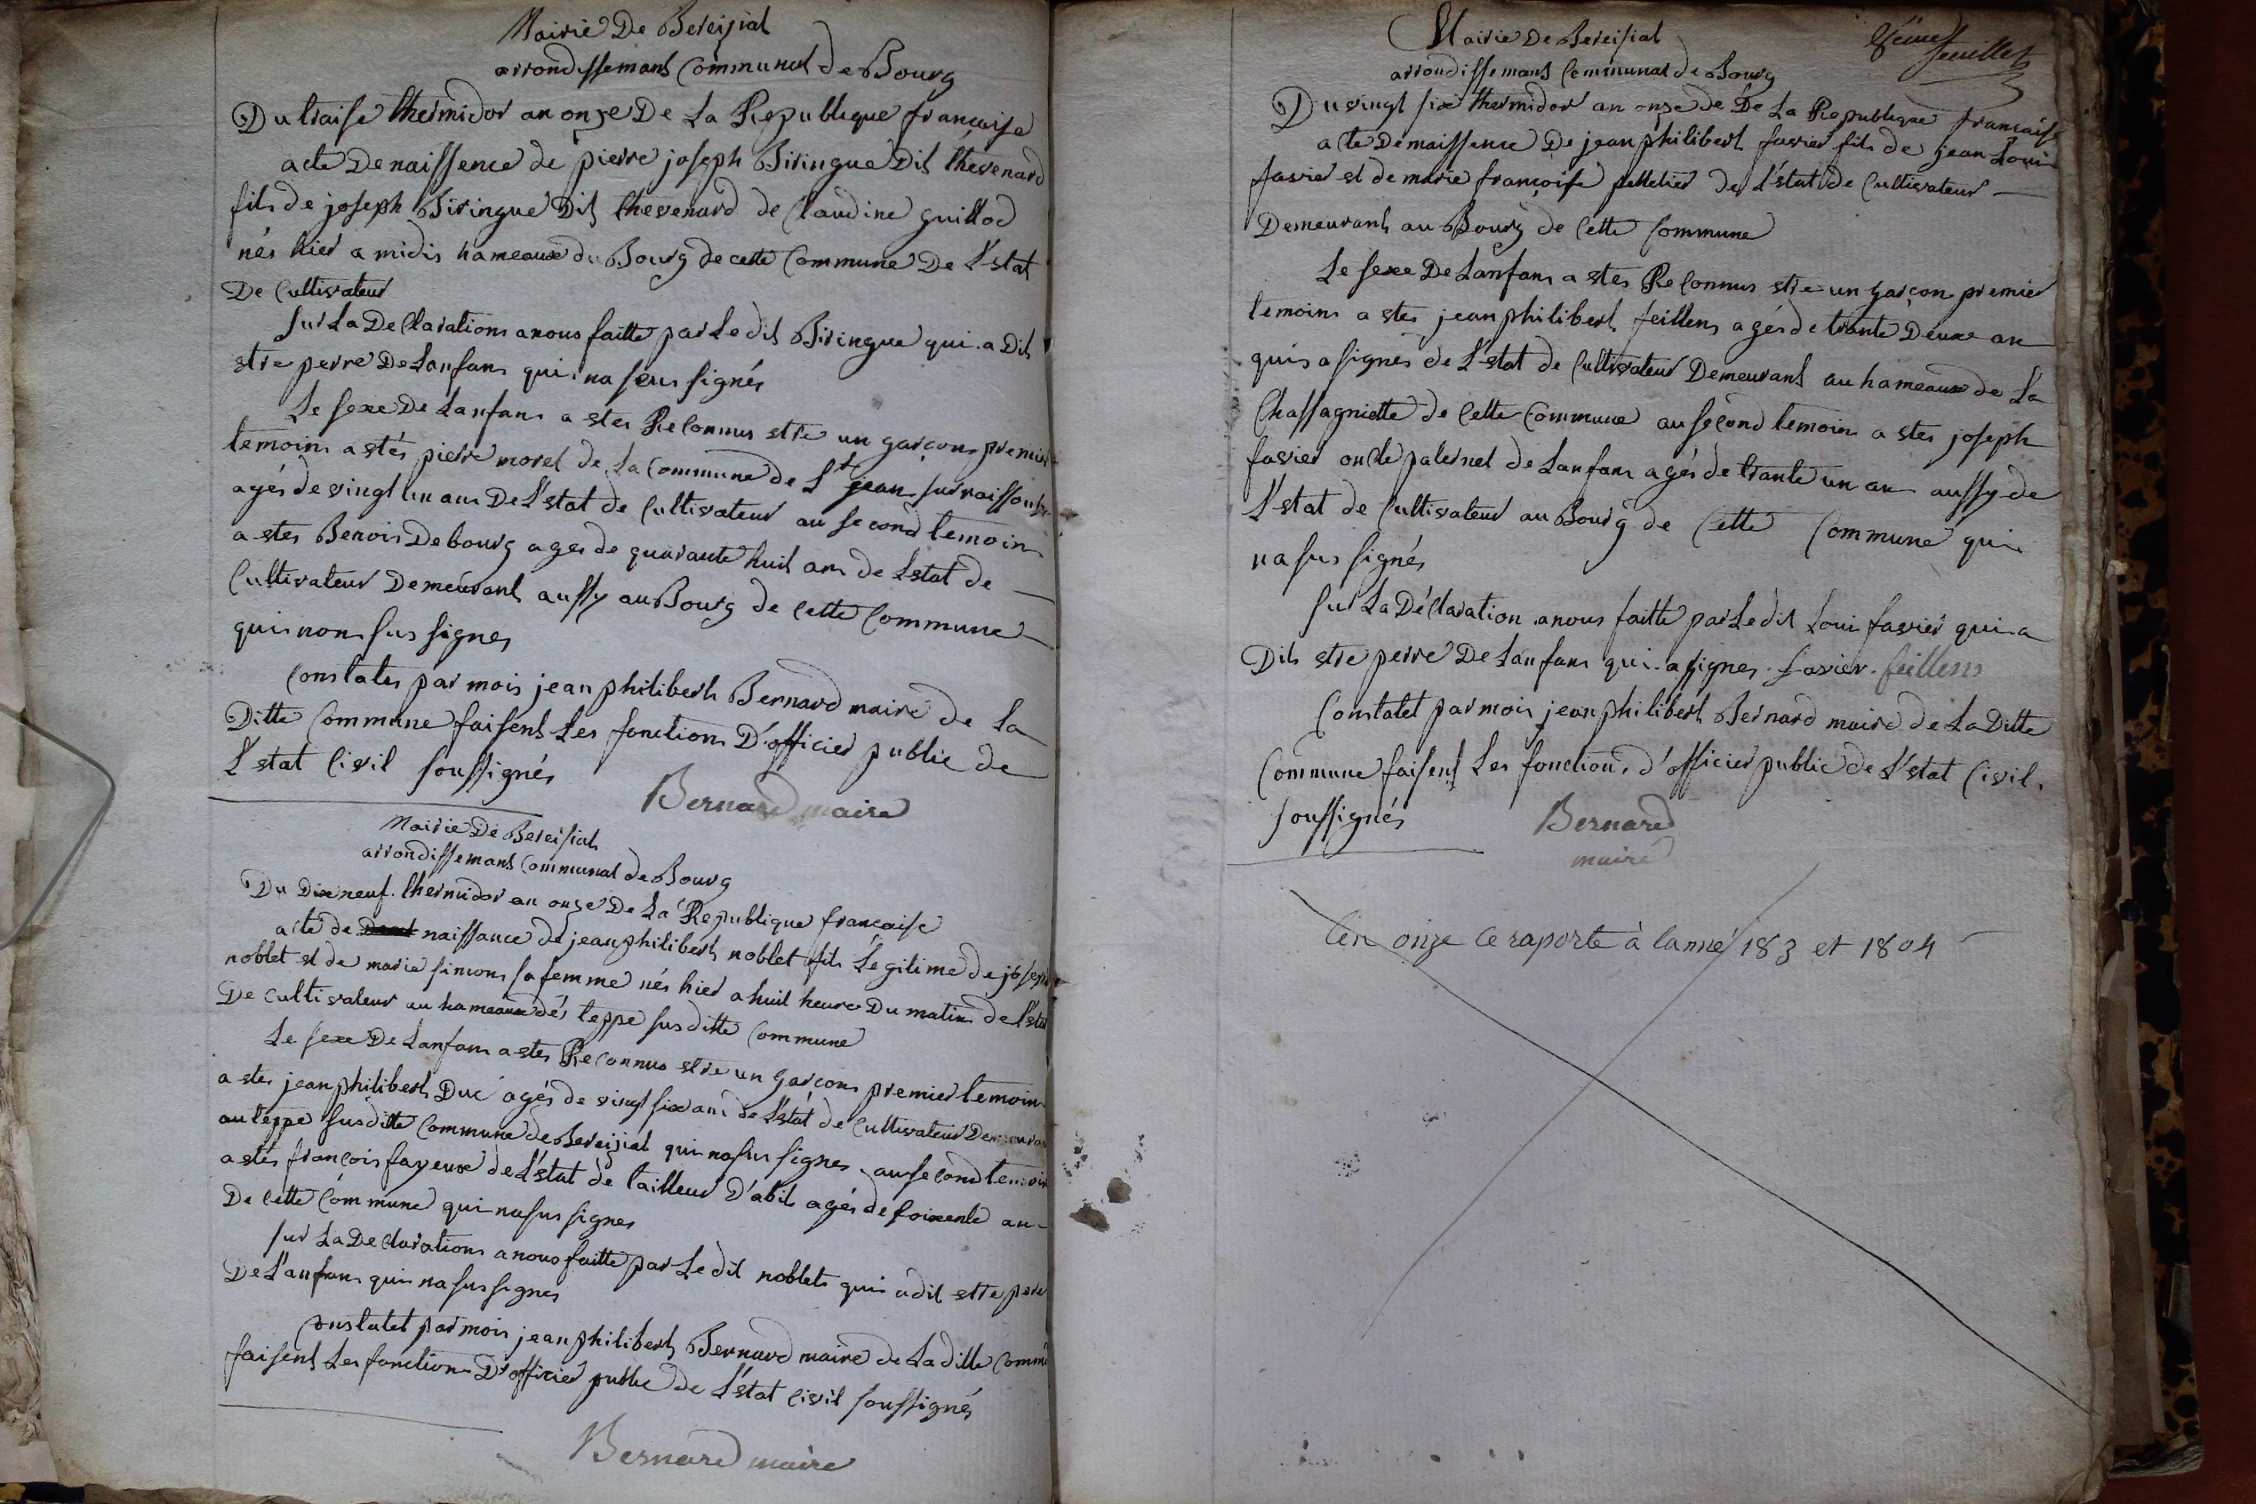 Mairie De Bereisiat
arrondissemant Communal de Bourg
Du traise thermidor an onze De La Republique françaisse
acte De naissence de pierre joseph Biringue Dit thevenard
fils de joseph Biringue Dit thevenard de Claudine guillod
nés hier a midis hameaux du Bourg de cette Commune De L'estat
De Cultivateur
sur La Declarations a nous faitte par Le dit Biringue qui a Dit
stre perre De Lanfans qui na seus signés
Le sexe De Lanfans a stes Reconnus stre un garçons premier
temoins a stés pierre morel de La Commune de St jean sur raissouse
agés de vingt un ans De L'estat de Cultivateur au second temoins
a stes Benois Debourg ages de quarante huit ans de Lestat de
Cultivateur Demeurant aussy au Bourg de Cette Commune
qui nons sus signes
Constates par mois jean philibert Bernard maire de La
Ditte Commune faisent Les fonctions D'officier public de
L'stat Civil soussignés
Bernard maire
Mairie De Bereisiat
arrondissemant Communal de Bourg
Du Dixneuf thermidor an onze De La Republique francaise
acte de naissance de jean philibert noblet fils Legitime de joseph
noblet et de marie simons sa femme nés hier a huit heure Du matin de L'stat
De Cultivateur au hameaux dés teppe sus ditte Commune
Le sexe De Lanfans a stes Reconnus stre un garcons premier temoins
a stes jean philibert Duc agés de vingt six ans de L'stat de Cultivateur Demeurant
au teppe susditte Commune de Bereiziat qui na sus signes au second temoin
a stés francois fayeuxe de L'stat de tailleur D'abit agés de soixente an
De Cette Commune qui na sus signes
sur La Declarations a nous faitte par Le dit noblets qui a dit stre pere
De L'anfans qui na sus signes
Constatet par mois jean philibert Bernard maire de La ditte Commune
faisent Les fonctions D'officier public de L'stat Civil soussignés
Bernard maire
8eime feuillet
Mairie De Bereisiat
arrondissemant Communal de Bourg
Du vingt six thermidor an onze de De La Republique française
acte De naissence De jean philibert favier fils de jean Loui
favier et de marie françoise pelletier de L'stat de Cultivateur
Demeurant au Bourg de Cette Commune
Le sexe De Lanfans a stes Reconnus stre un garçon premier
temoins a stes jean philibert feillens agés de trante Deuxe an
qui a signes de L'stat de Cultivateur Demeurant au hameaux de La
Chassagniette de Cette Commune au second temoins a stes joseph
favier oncle paternel de Lanfans agés de trante un an aussy de
L'stat de Cultivateur au Bourg de Cette Commune qui
na sus signés
sur La Déclaration a nous faitte par Le dit Loui favier qui a
Dit stre perre De Lanfans qui a signes favier feillens
Constatet par mois jean philibert Bernard maire de La Ditte
Commune faisent Les fonctions d'officier public de L'stat Civil
soussignés
Bernard
maire
L'en onze ce raporte à l'anné 183 et 1804